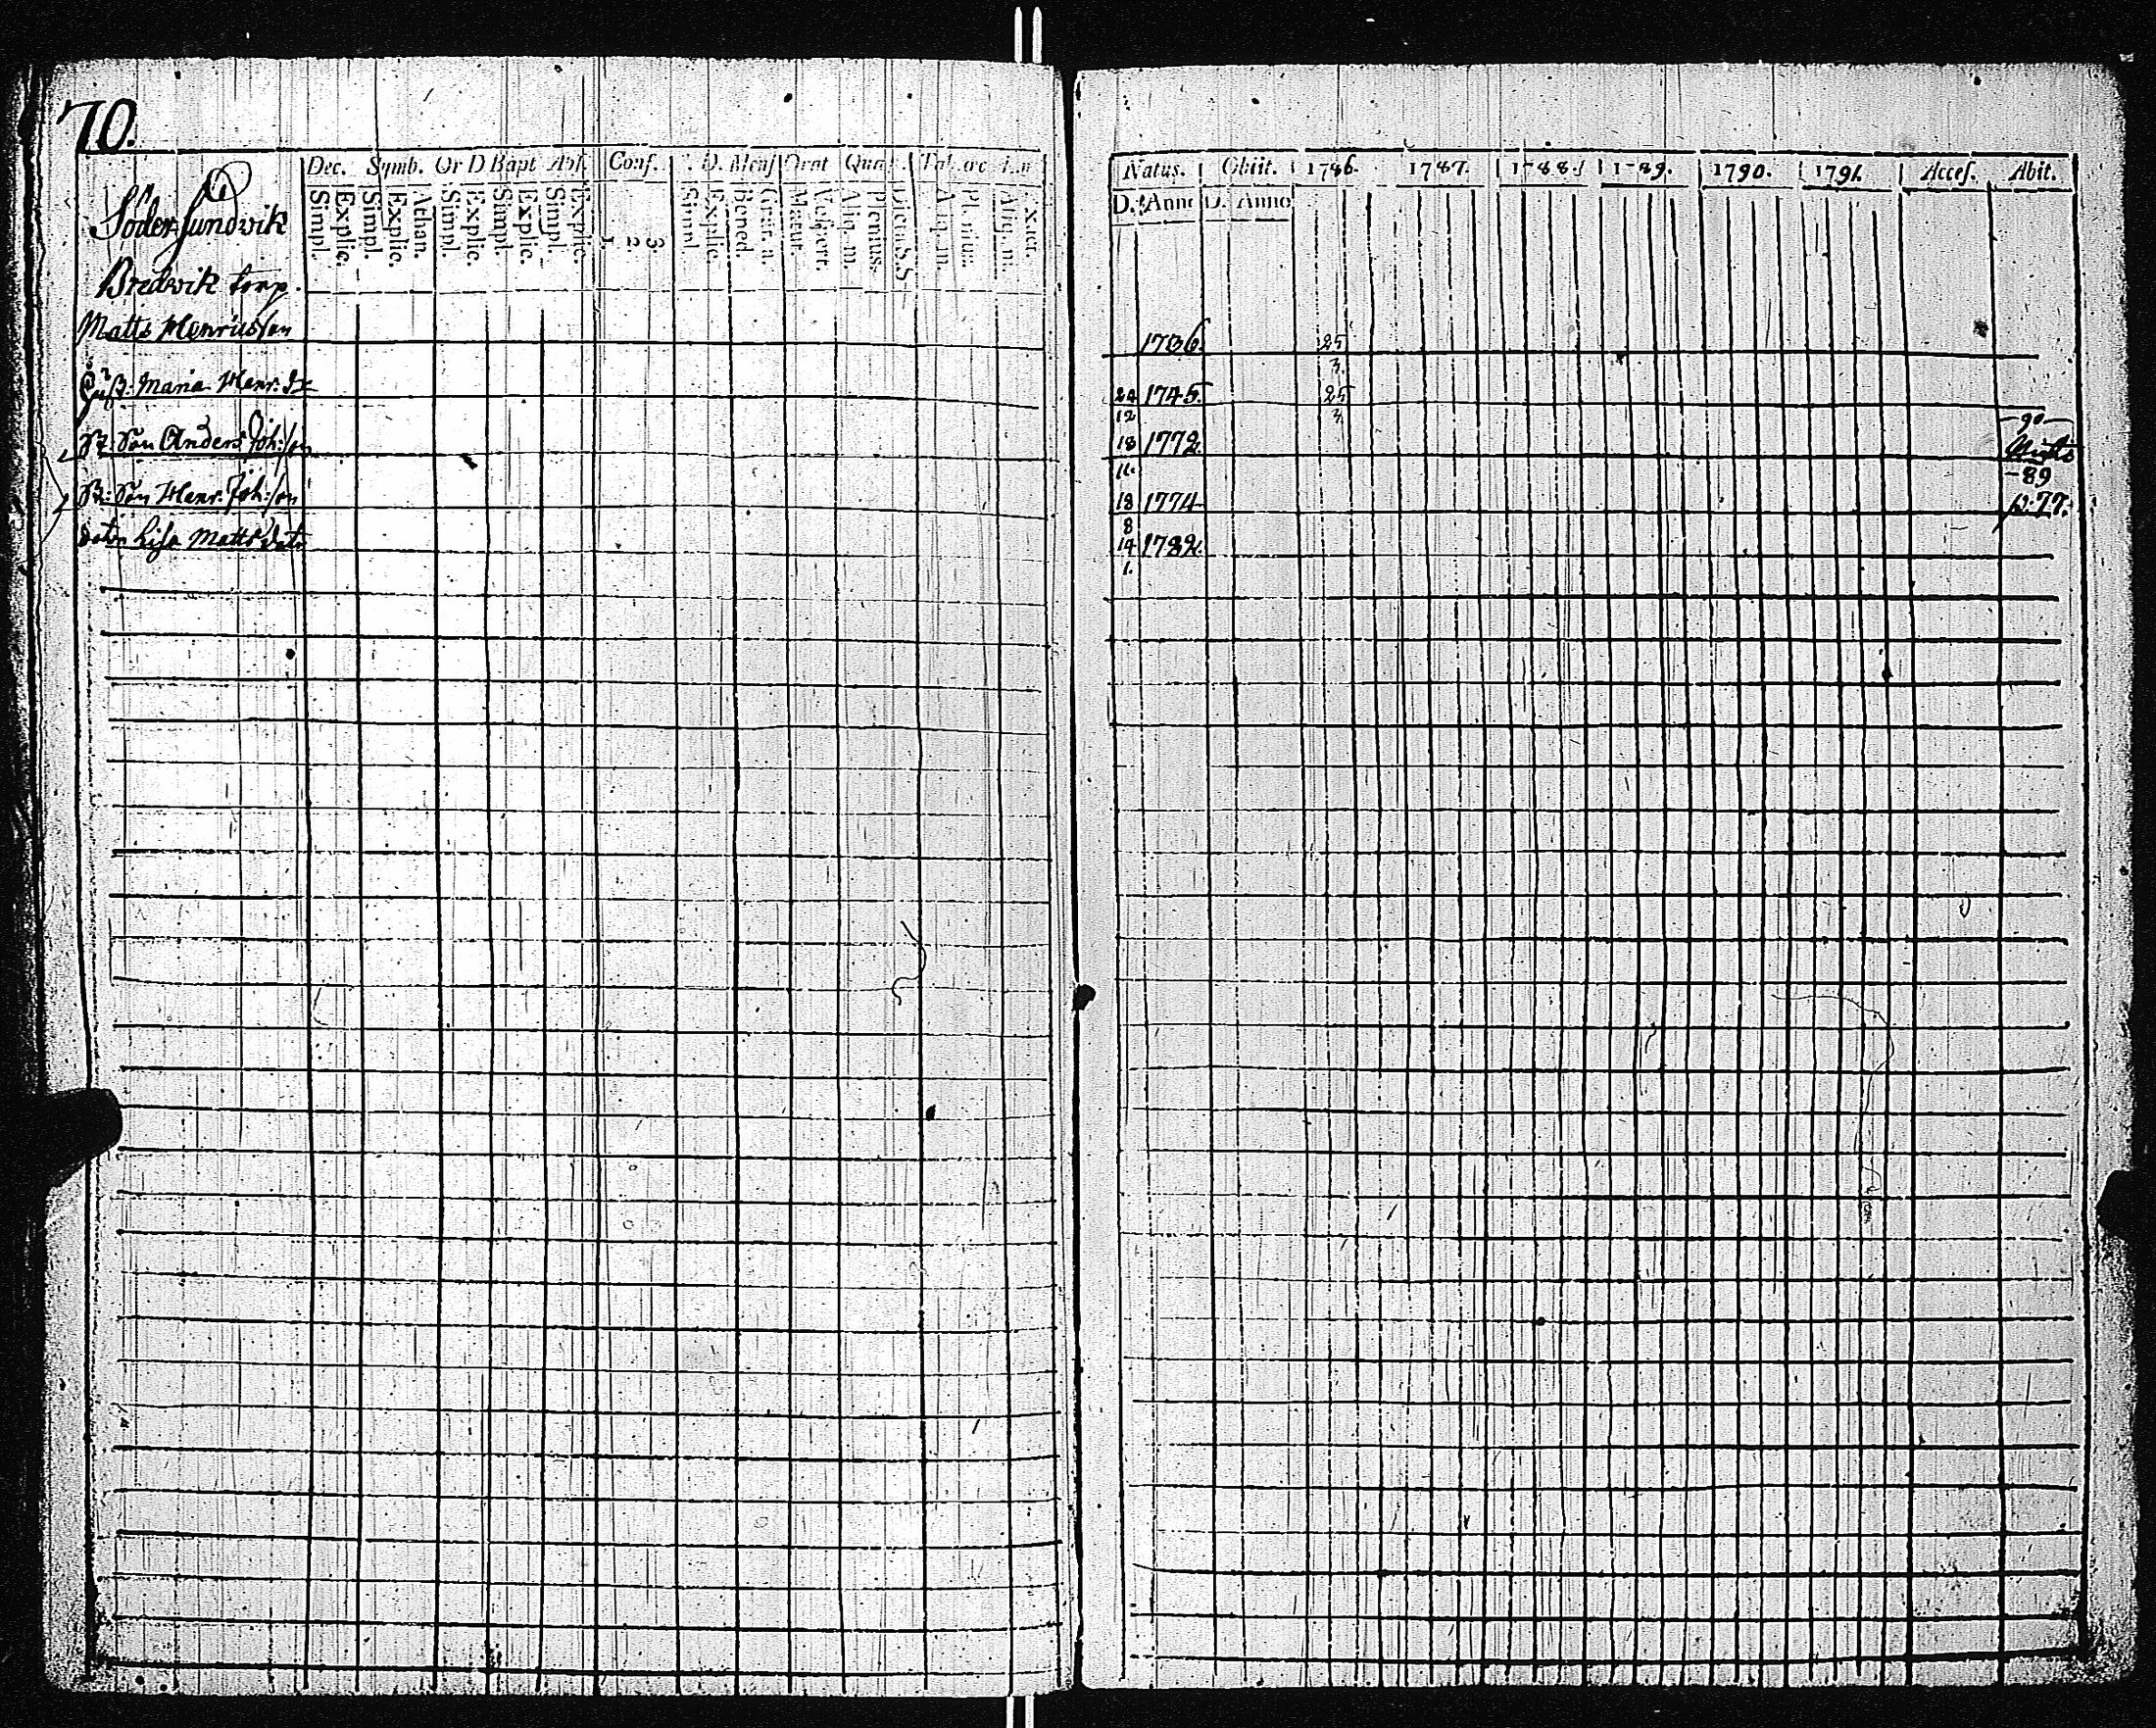 70.
Dec. Symb. Or D Bapt Abs. Conf. D. Mens Orat Quæ
Simpl. Explic. Simpl. Explic. Athan. Simpl. Explic. Simpl. Explic. Simpl. Explic. 1. 2. 3. Simpl. Explic. Bened. Grat. a. Matut. Vespert. Aliq. m. Plenius. Dicta S.S. Aliq. m. Plenius. Aliq. m. Exter.
Natus. Obiit. 1786. 1787. 1788. 1789. 1790. 1791. Acces. Abit.
D. Anno D. Anno
Söder Sundvik
Bredvik torp.
Matts Henricsson 1736. 25 3.
Hust: Maria Henr: dr 24 12 1745. 25 3
St: Son Anders Joh:son 18 11. 1772. 90
St: Son Henr: Joh:son 18 8 1774 -89 p: 77.
Dotr Lisa Matts dotr 14 1. 1782.